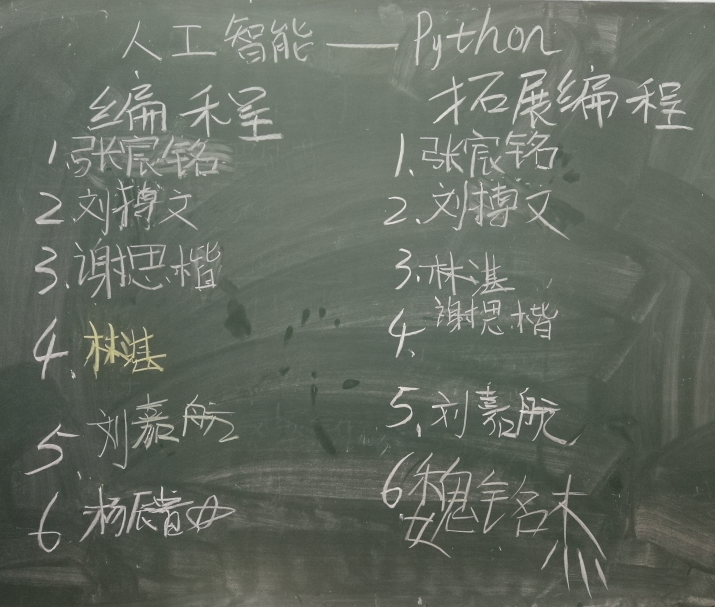 人工智能——Python
编程
1.张宸铭
2.刘搏文
3.谢思楷
4.林湛
5.刘嘉航
6 杨辰
拓展编程
1.张宸铭
2.刘搏文
3.林湛
4.谢思楷
5.刘嘉航
6魏铭杰